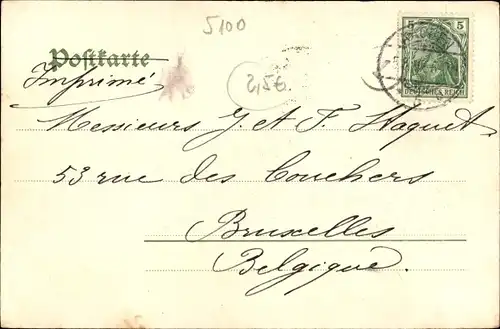 5100
Postkarte
Imprimé
2,5€.
5 5
DEUTSCHES REICH
Messieurs G. et F. Haquet,
53 rue des Couchers
Bruxelles
Belgique.